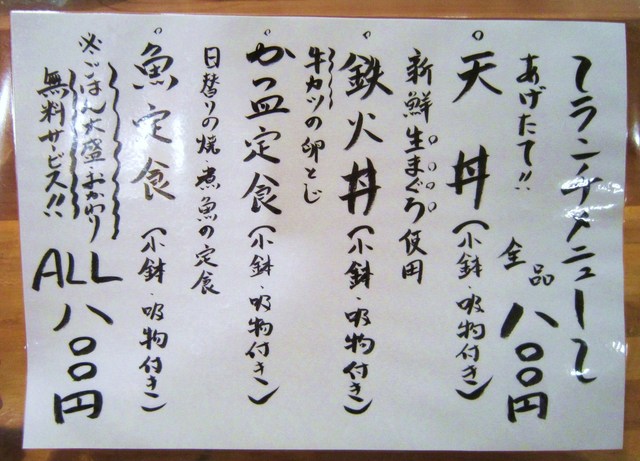 ～ランチメニュー～
全品八〇〇円
あげたて!!
。天丼(小鉢・吸物付き)
新鮮生まぐろ使用
。鉄火丼(小鉢・吸物付き)
牛カツの卵とじ
。かつ皿定食(小鉢・吸物付き)
日替りの焼・煮魚の定食
。魚定食(小鉢・吸物付き)
※ごはん大盛・おかわり
無料サービス!!
ALL八〇〇円